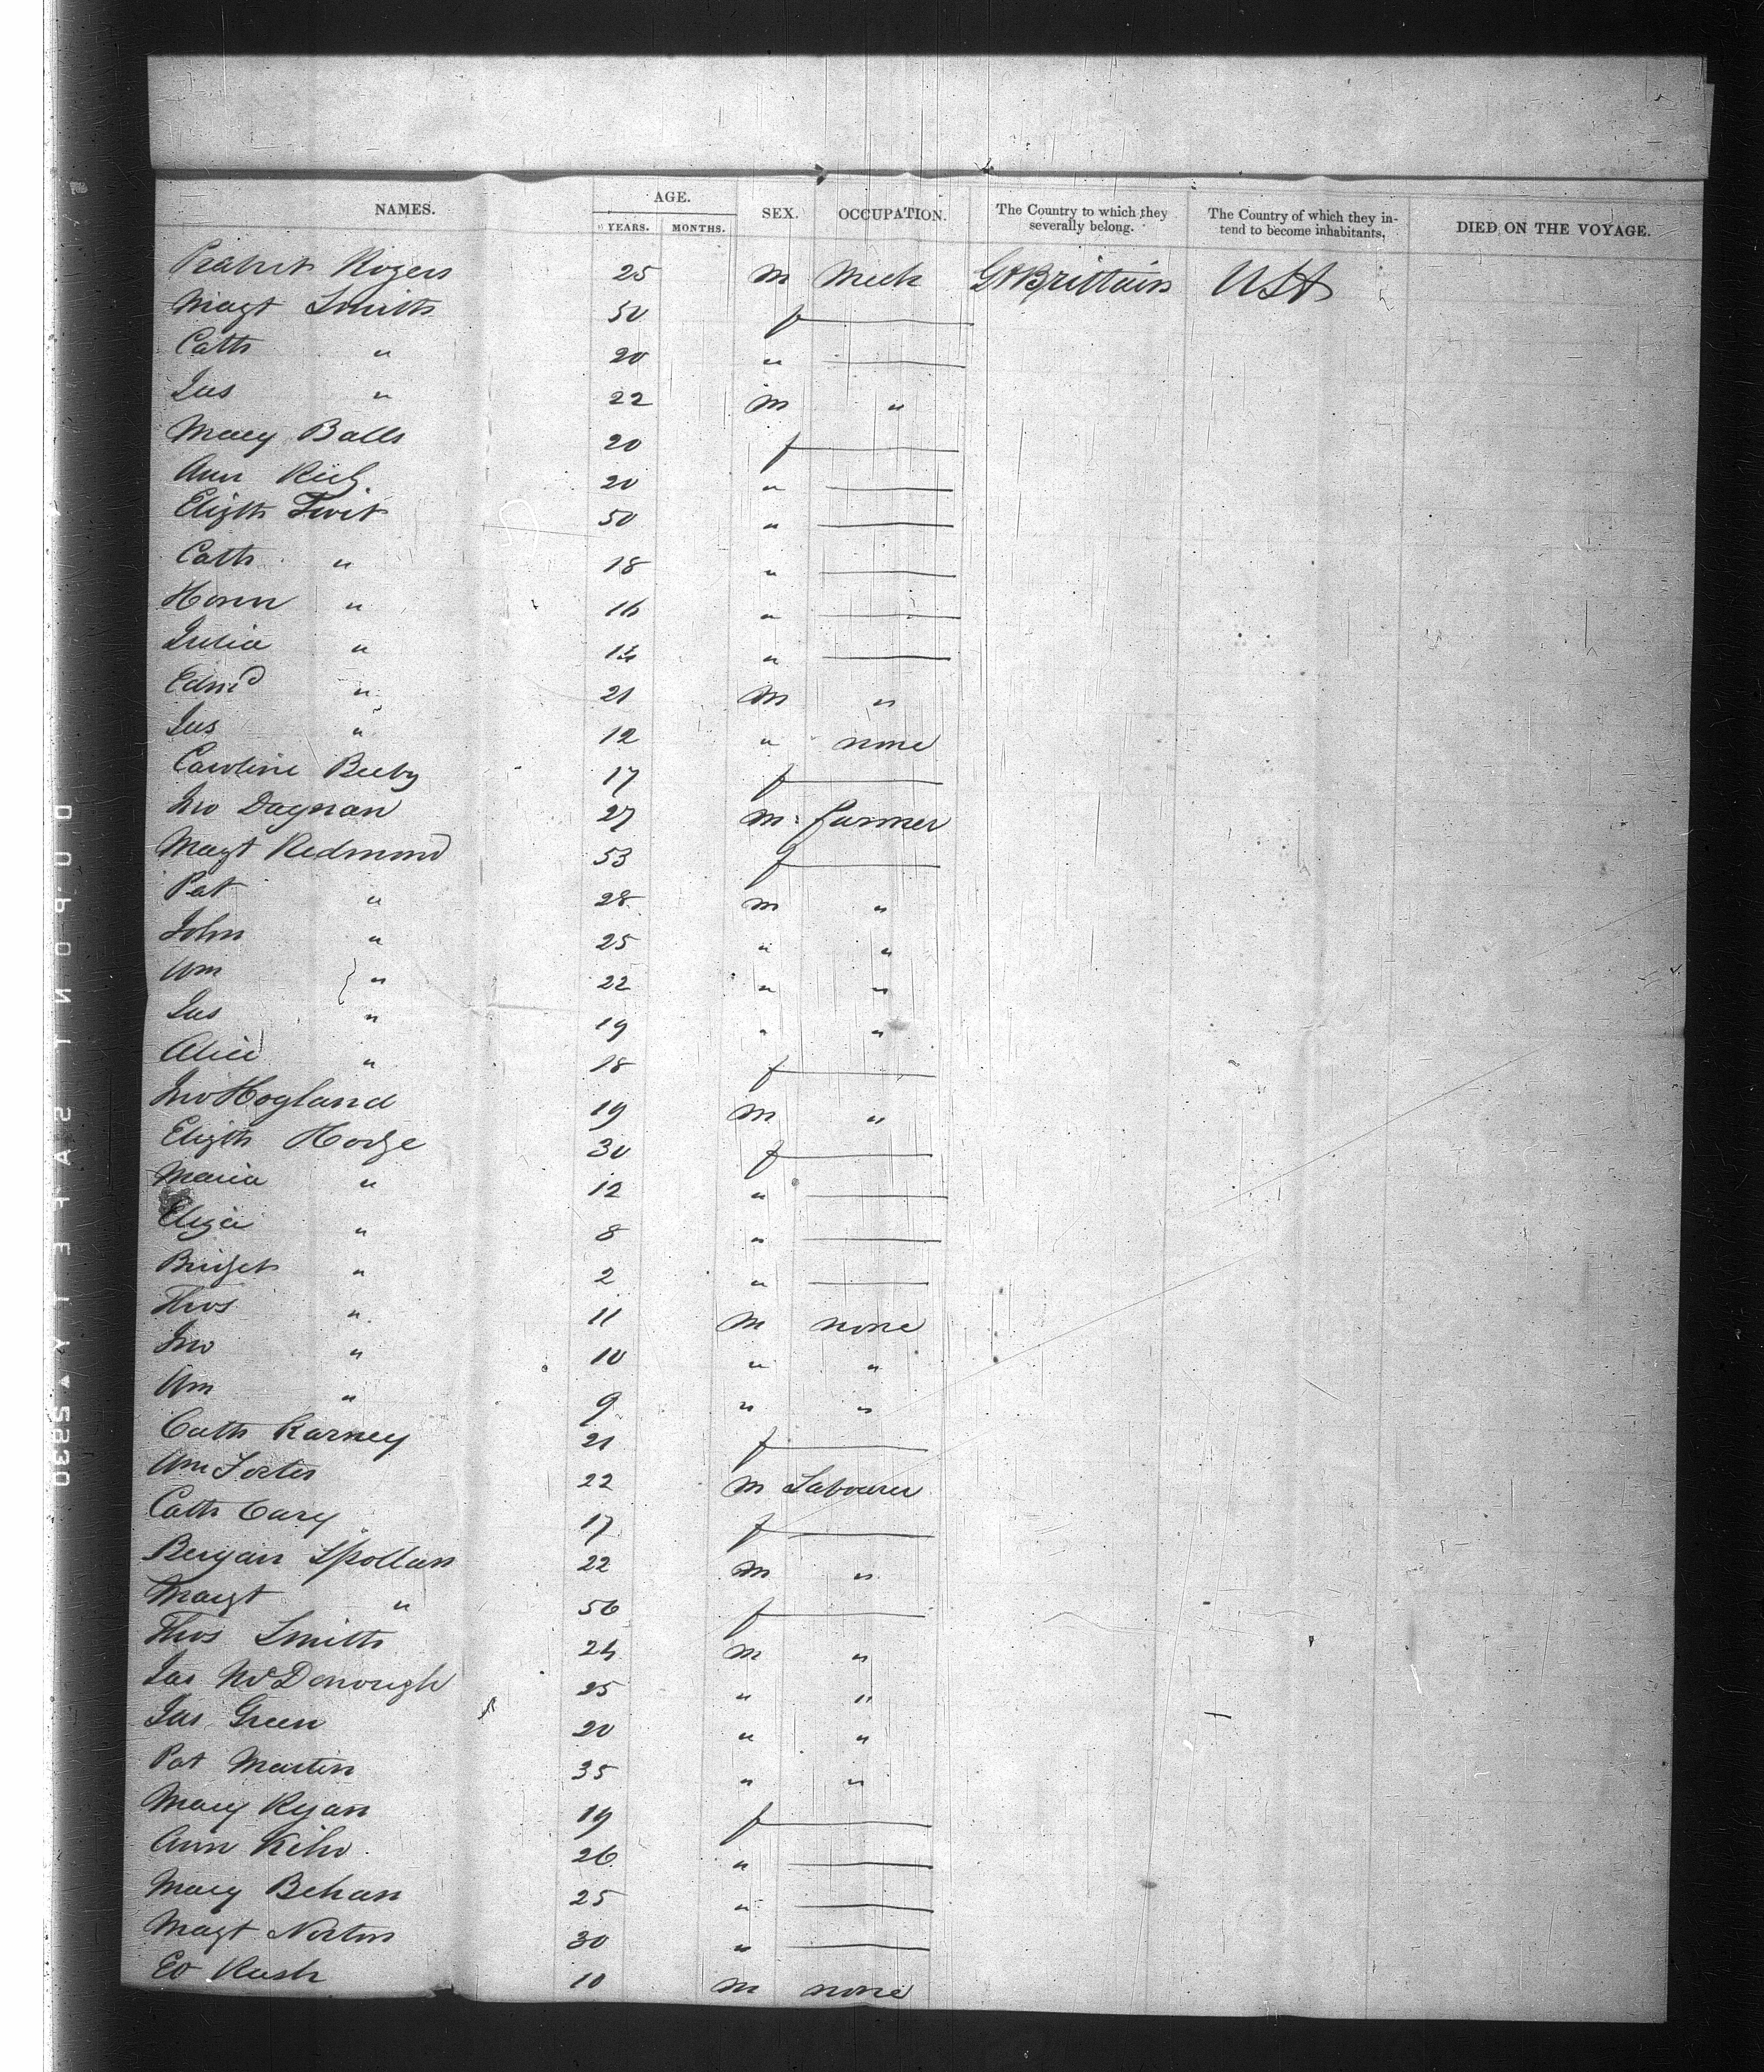 NAMES. AGE. YEARS. MONTHS. SEX. OCCUPATION. The Country to which they severally belong. The Country of which they intend to become inhabitants. DIED ON THE VOYAGE.
Rogers 25 m Mech Gt Brittain USA
Magt Smith 50 f
Cath " 20 "
Jas " 22 m "
Mary Balls 20 f
Ann 20 "
Elizth 50 "
Cath " 18 "
Honr " 16 "
Julia " "
Edmd " 21 m "
Jas " 12 " none
Caroline Beeby 17 f
Jno Dagnan 27 m farmer
Magt Redmond 53 f
Pat " 28 m "
John " 25 " "
Wm " 22 " "
Jas " 19 " "
Alice " 18 f
Jno Hogland 19 m "
Elizth Hodge 30 f
Maria " 12 "
Eliza " 8 "
Bridget " 2 "
Thos " 11 m none
Jno " 10 " "
Wm " 9 " "
Cath Karney 21 f
Wm 22 m Labourer
Cath Cary 17 f
Spollan 22 m "
Margt " 56 f
Thos Smith 24 m "
Jas McDonough 25 " "
Jas Green 20 " "
Pat Martin 35 " "
Mary Ryan 19 f
Ann 26 "
Mary Behan 25 "
Magt Norton 30 "
Ed Rush 10 m none